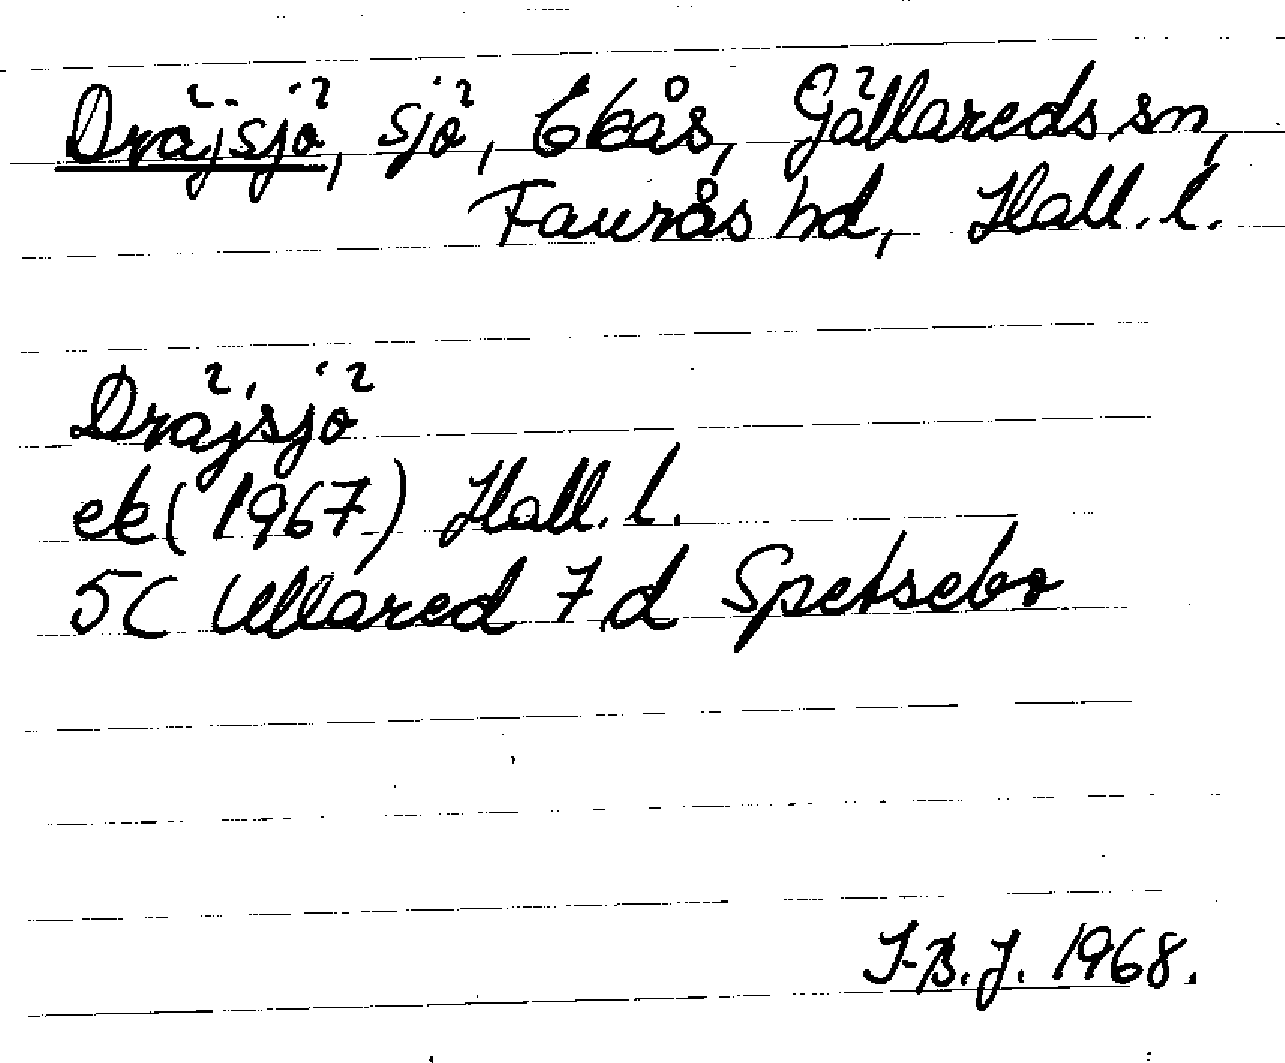 Dräjsjö, sjö, Ekås, Gällareds sn,
Faurås hd, Hall. l.
Dräjsjö
ek (1967) Hall. l.
5C Ullared 7d Spetsebo
I-B. J. 1968.